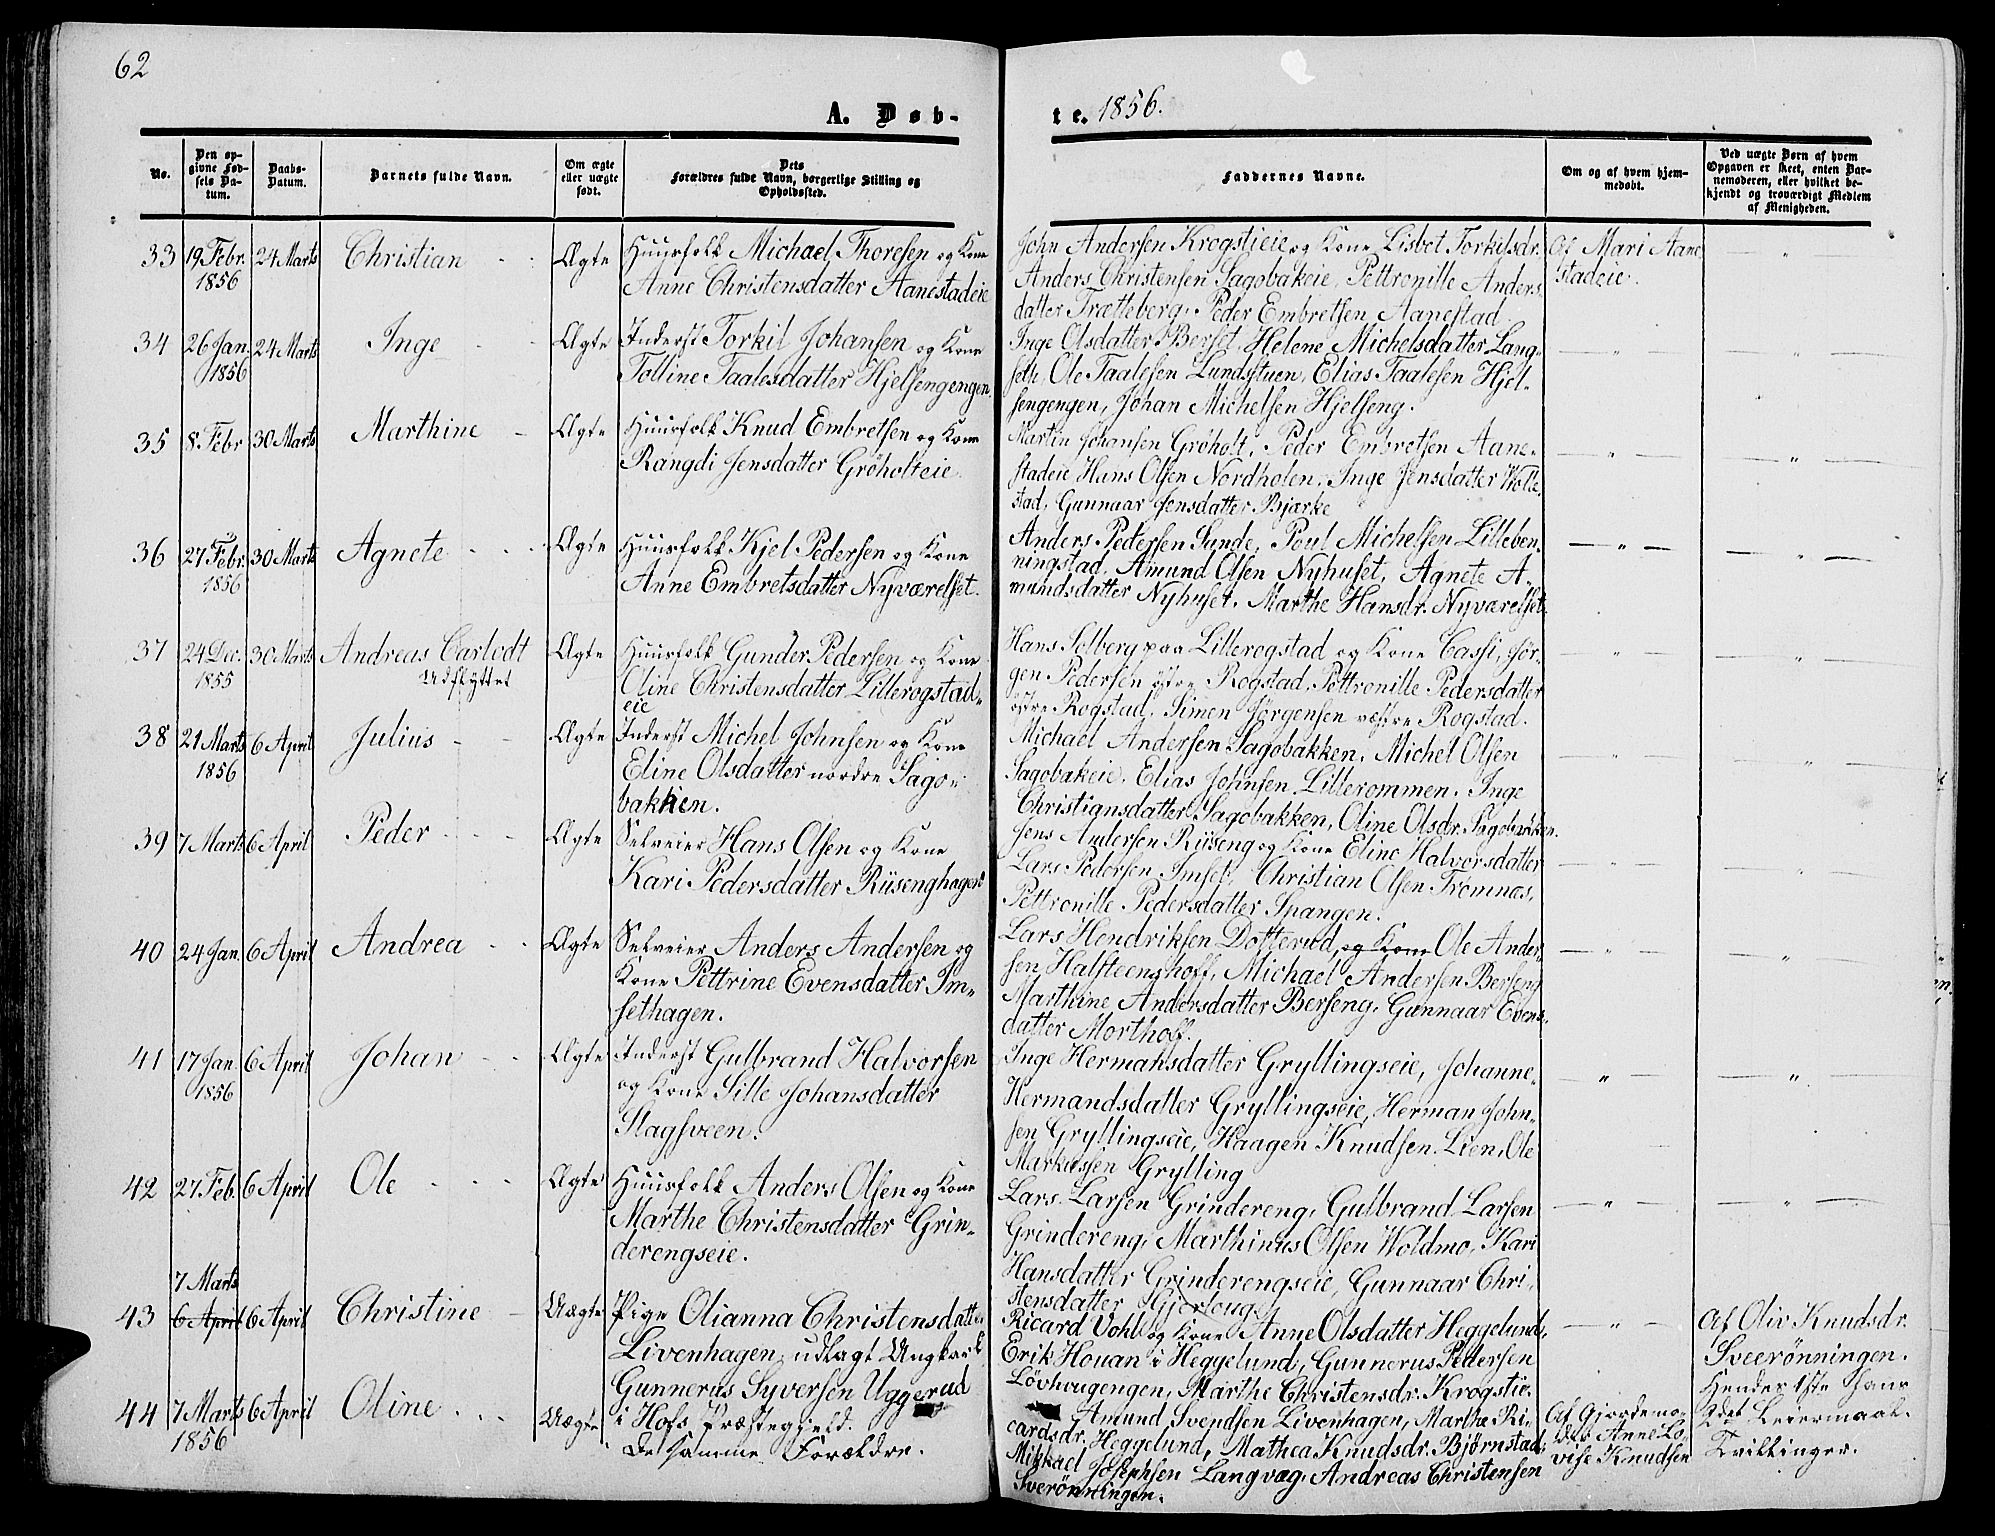 62
A. Døb-
te. 1856.
No.
Den op-
givne Fød-
sels Da-
tum.
Daabs-
Datum.
Barnets fulde Navn.
Om ægte
eller uægte
født.
Dets
Forældres fulde Navn, borgerlige Stilling og
Opholdssted.
Faddernes Navne.
Om og af hvem hjem-
medøbt.
Ved uægte Børn af hvem
Opgaven er skeet, enten Bar-
nemoderen, eller hvilket be-
kjendt og troværdigt Medlem
af Menigheden.
33 19 Febr. 1856 24 Marts Christian Ægte
Huusfolk Michael Thoresen og Kone
Anne Christensdatter Aanestadeie
John Andersen Krogstieie og Kone Lisbet Torkilsdr.
Anders Christensen Sagobakeie, Pettronille Anders
datter Trætteberg. Peder Embretsen Aanestad.
Af Mari Aane
stadeie.
34 26 Jan. 1856 24 Marts Inge Ægte
Inderst Torkil Johansen og Kone
Tolline Taalesdatter Hjelsengengen
Inge Olsdatter Berset, Helene Michelsdatter Lang-
seth, Ole Taalesen Lundstuen, Elias Taalesen Hjel-
sengengen, Johan Michelsen Hjelseng.
35 8. Febr 30 Marts Marthine Ægte
Huusfolk Knud Embretsen og Kone
Rangdi Jensdatter Grøholteie.
Martin Johansen Grøholt, Peder Embretsen Aane-
stadeie Hans Olsen Nordholen. Inge Jensdatter Wolle
stad, Gunnaar Jensdatter Bjærke
36 27 Febr. 1856 30 Marts Agnete Ægte
Huusfolk Kjel Pedersen og Kone
Anne Embretsdatter Nyværelset.
Anders Pedersen Sunde, Poul Michelsen Lilleben-
ningstad, Amund Olsen Nyhuset, Agnete A-
mundsdatter Nyhuset. Marthe Hansdr. Nyværelset
37 24 Dec. 1855 30 Marts Andreas Carlodt Ægte
Udflyttet
Huusfolk Gunder Pedersen og Kone
Oline Christensdatter Lillerogstad-
eie
Hans Solberg paa Lillerogstad og Kone Cassi, Jør-
gen Pedersen østre Rogstad, Pettronille Pedersdatter
østre Rogstad. Simen Jørgensen vestre Rogstad.
38 21 Marts 1856 6 April Julius Ægte
Inderst Michel Johnsen og Kone
Eline Olsdatter nordre Sago-
bakken.
Michael Andersen Sagobakken, Michel Olsen
Sagobakeie, Elias Johnsen Lillerommen. Inge
Christiansdatter Sagobakken, Oline Olsdr. Sagobakken.
39 7 Marts 6 April Peder Ægte
Selveier Hans Olsen og Kone
Kari Pedersdatter Riisenghagen
Jens Andersen Riiseng og Kone Eline Halvorsdatter
Lars Pedersen Imset, Christian Olsen Trømnæs,
Pettronille Pedersdatter Spangen.
40 24 Jan. 6 April Andrea Ægte
Selveier Anders Andersen og
Kone Pettrine Evensdatter Im-
sethagen.
Lars Hendriksen Dotterud, og Kone Ole Ander-
sen Halsteenshoff, Michael Andersen Berseng
Marthine Andersdatter Berseng, Gunnaar Evens-
datter Morthoff.
41 17 Jan. 1856 6 April Johan Ægte
Inderst Gulbrand Halvorsen
og Kone Sille Johansdatter
Slagsveen.
Inge Hermansdatter Gryllingseie, Johanne
Hermandsdatter Gryllingseie, Herman John-
sen Gryllingseie, Haagen Knudsen Lien, Ole
Markussen Grylling
42 27 Feb. 6 April Ole Ægte
Huusfolk Anders Olsen og Kone
Marthe Christensdatter Grin-
derengseie.
Lars Larsen Grindereng, Gulbrand Larsen
Grindereng, Marthinus Olsen Woldmo, Kari
Hansdatter Grinderengseie, Gunnaar Chri-
stensdatter Gjerlouget
43 7 Marts 6 April 6 April Christine Uægte
Pige Olianna Christensdatter
Livenhagen, udlagt Ungkarl
Gunnerus Syversen Uggerud
i Hofs Præstegjeld.
Ricard Vohl og Kone Anne Olsdatter Heggelund,
Erik Houan i Heggelund, Gunnerus Pedersen
Løvhougengen, Marthe Christensdr. Krogstie.
Af Oliv Knudsdr.
Sveerønningen.
Hendes 1ste Hans
2det Leiermaal.
Tvillinger.
44 7 Marts 1856 6 April Oline Uægte
De samme Forældre.
Amund Svendsen Livenhagen, Marthe Ri-
cardsdr. Heggelund, Mathea Knudsdr. Bjørnstad,
Mikkael Josephsen Langvæg, Andreas Christensen
Sverønningen.
Af Gjordemo-
der Anne Lo-
vise Knudsen